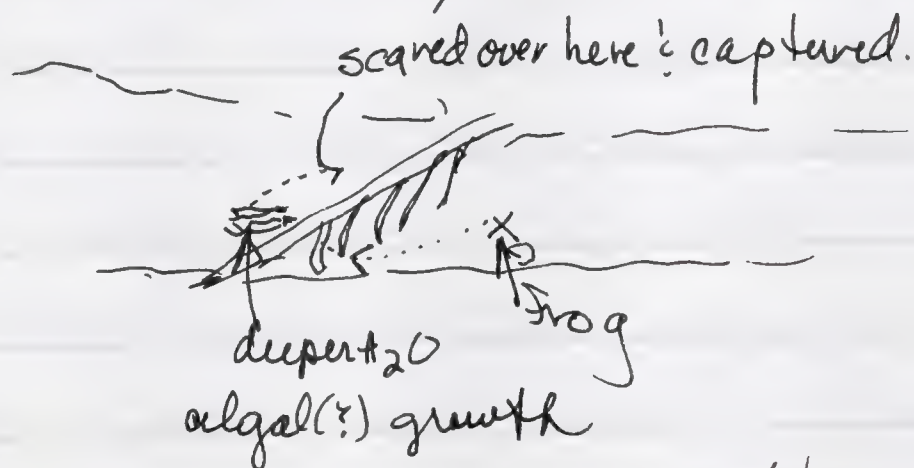 scared over here & captured.
X
Frog
deeper H₂O
algal(?) growth